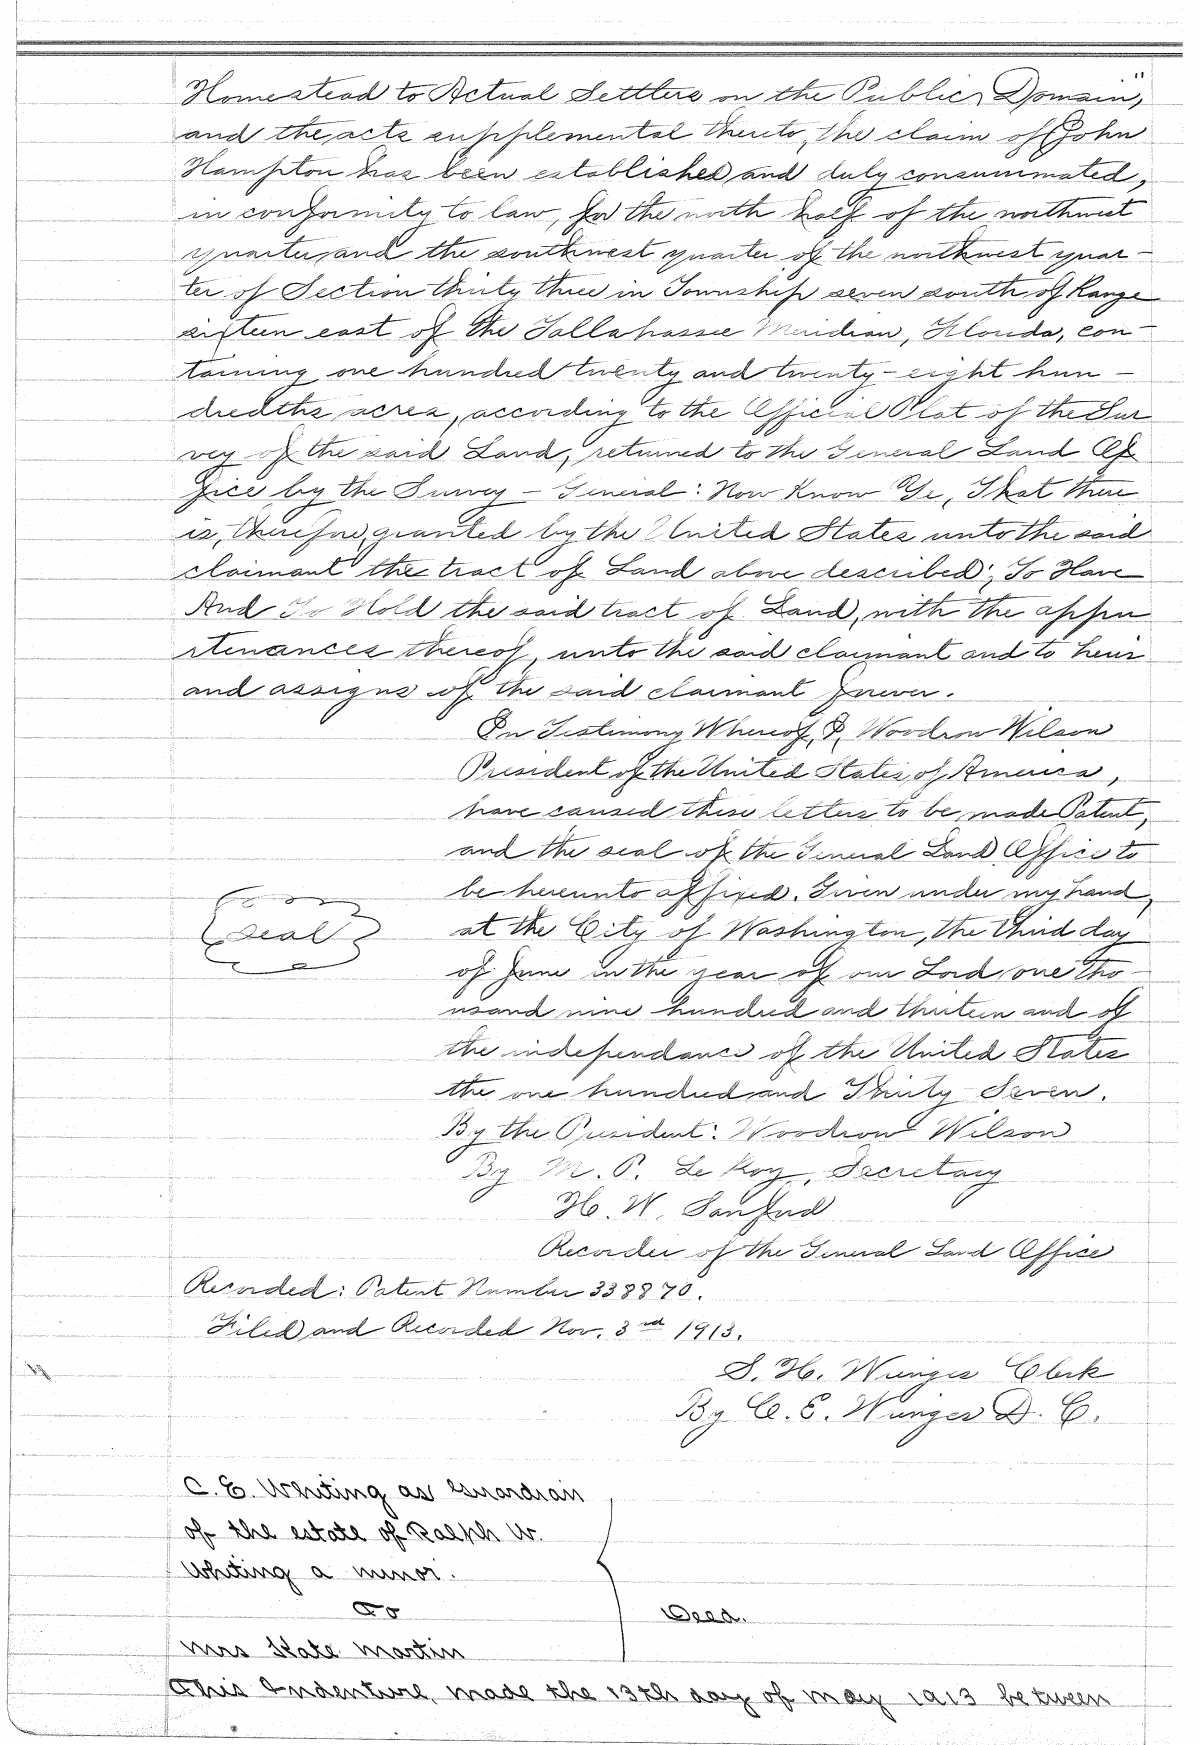 Homestead to Actual Settlers on the Public Domain,"
and the acts supplemental thereto, the claim of John
Hampton has been established and duly consummated,
in conformity to law, for the north half of the northwest
quarter and the southwest quarter of the northwest quar-
ter of Section thirty three in Township seven south of Range
sixteen east of the Tallahassee Meridian, Florida, con-
taining one hundred twenty and twenty-eight hun-
dredths acres, according to the Official Plat of the Sur
vey of the said Land, returned to the General Land Of
fice by the Survey-General: Now Know Ye, That there
is, therefore, granted by the United States unto the said
claimant the tract of Land above described; To Have
And To Hold the said tract of Land, with the appu
rtenances thereof, unto the said claimant and to heirs
and assigns of the said claimant forever.
In Testimony Whereof, I, Woodrow Wilson
President of the United States of America,
have caused these letters to be made Patent,
and the seal of the General Land Office to
be hereunto affixed. Given under my hand,
Seal
at the City of Washington, the third day
of June in the year of our Lord one tho-
usand nine hundred and thirteen and of
the independance of the United States
the one hundred and Thirty-Seven.
By the President: Woodrow Wilson
By M. P. Le Roy, Secretary
H. W. Sanford
Recorder of the General Land Office
Recorded: Patent Number 338870.
Filed and Recorded Nov. 3rd 1913.
S. H. Clerk
By C. E. D. C.
C. E. Whiting as Guardian
of the estate of Ralph W.
Whiting a minor.
To
Deed.
Mrs Kate Martin
This Indenture, made the 13th day of May 1913 between